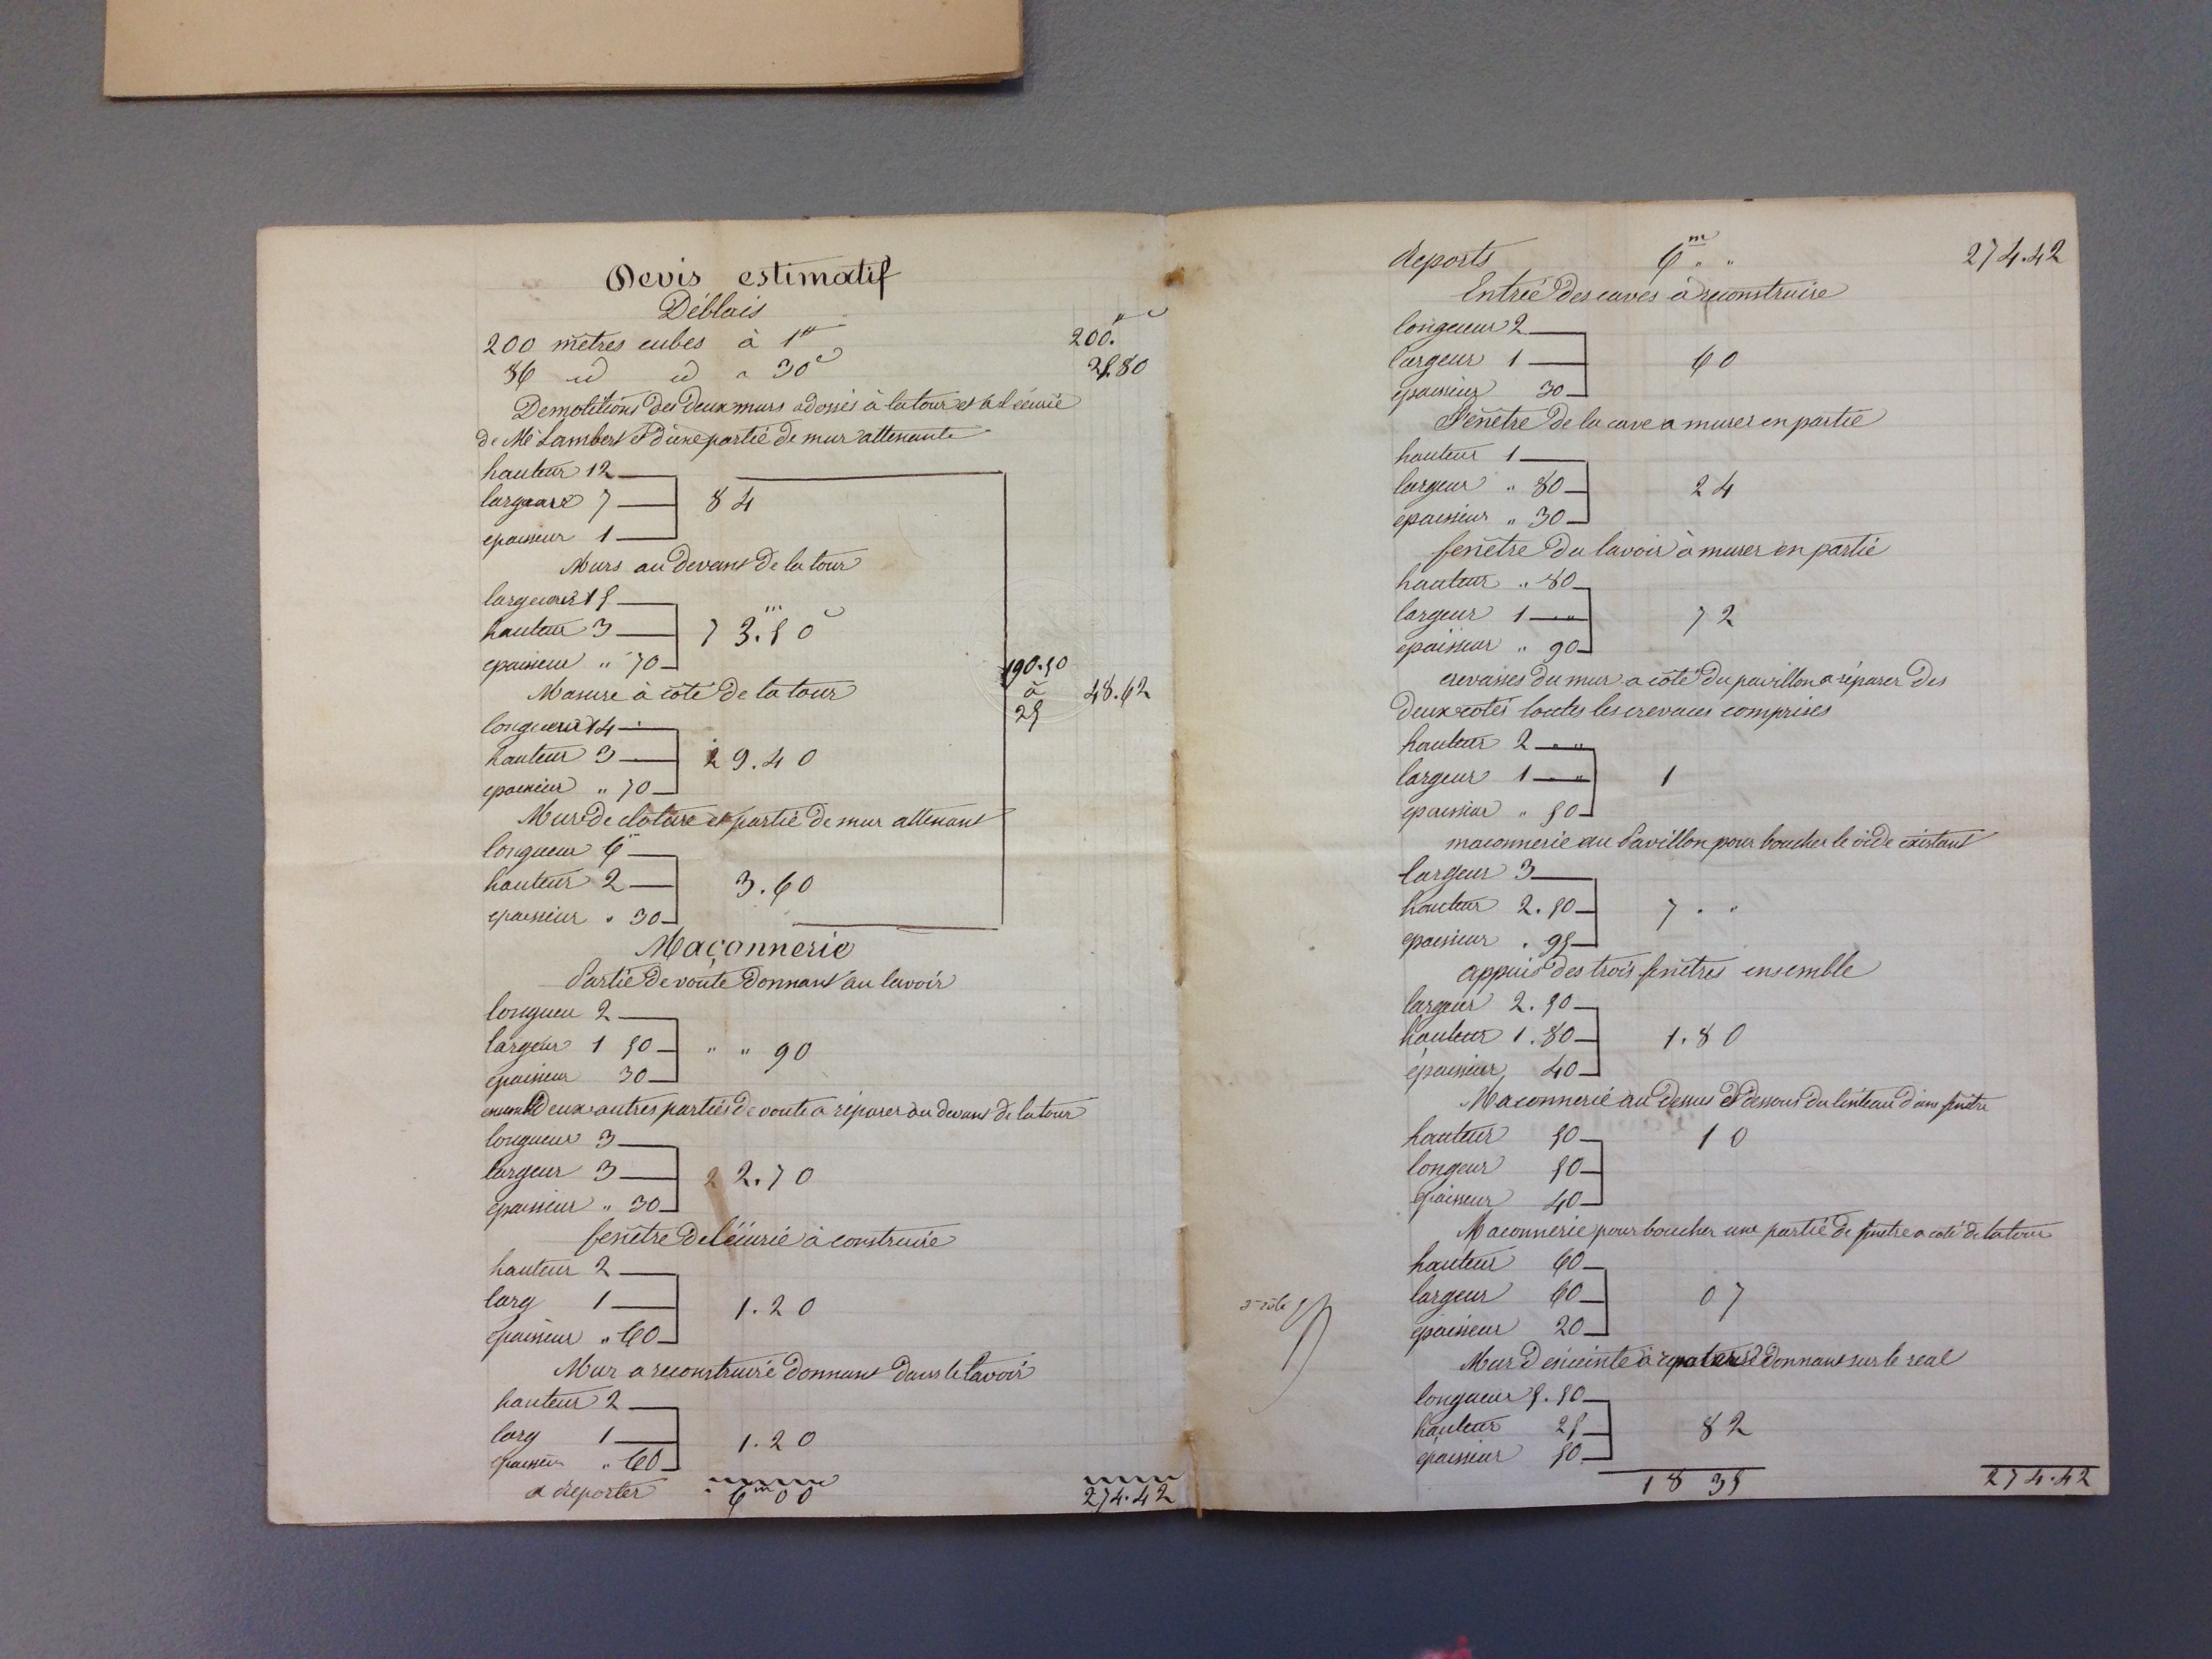 Devis estimatif
Déblais
200 mètres cubes à 1" 200."
86 id id à 30c 25.80
Demolitions des deux murs adossés à la tour et à l'écurie
de Me Lambert et d'une partie de mur attenante
hauteur 12
largeur 7 84
epaisseur 1
Murs au devant de la tour
largeur 15
hauteur 3 73.50
epaisseur " 70
190.50
à 48.62
25
Masure à côté de la tour
longueur 14
hauteur 3 29.40
epaisseur " 70
Mur de cloture et partie de mur attenant
longueur 6
hauteur 2 3.60
epaisseur " 30
Maçonnerie
Partie de voute donnant au lavoir
longueu 2
largeur 1 50 " " 90
epaisseur 30
ensemble deux autres parties de voute a réparer au devant de la tour
longueur 3
largeur 3 2.70
epaisseur " 30
fenêtre de l'écurie à construire
hauteur 2
larg 1 1.20
epaisseur " 60
Mur a reconstruire donnant dans le lavoir
hauteur 2
larg 1 1.20
epaisseur " 60
a reporter 6m00 274.42
Reports 6m " " 274.42
Entrée des caves à reconstruire
longueur 2
largeur 1 60
epaisseur 30
Fenêtre de la cave a murer en partie
hauteur 1
largeur " 80 24
epaisseur " 30
fenetre du lavoir à murer en partie
hauteur " 80
largeur 1 " 72
epaisseur " 90
crevasses du mur a côté du pavillon a réparer des
deux cotés toutes les crevaces comprises
hauteur 2 " "
largeur 1 " 1
epaisseur " 50
maconnerie au Pavillon pour boucher le vide existant
largeur 3
hauteur 2.50 7 . "
epaisseur . 95
appuis des trois fenêtres ensemble
largeur 2.50
hauteur 1.80 1.80
épaisseur 40
Maconnerie au dessus et dessous du linteau d'une fenêtre
hauteur 50 10
longeur 50
epaisseur 40
Maconnerie pour boucher une partie de fenetre a coté de la tour
hauteur 60
largeur 60 07
epaisseur 20
Mur d'enceinte à reparer donnant sur le real
longueur 5.50
hauteur 25 82
epaisseur 50
18 35 274.42